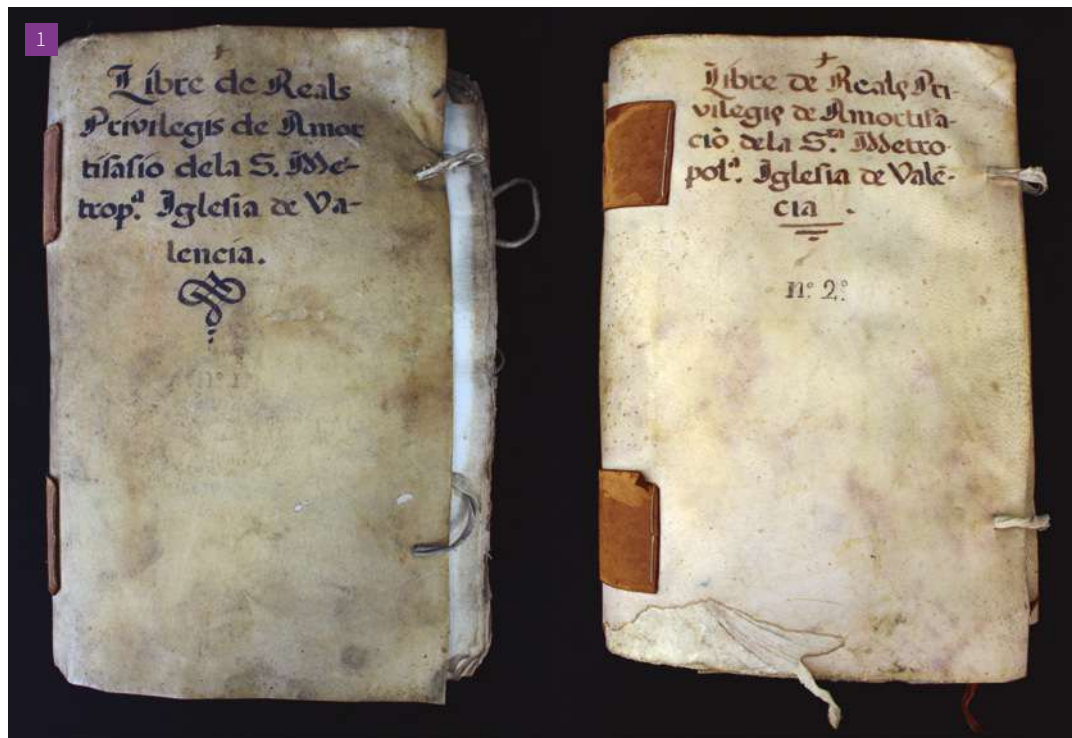 1
Libre de Reals
Privilegis de Amor
tisasio dela S. Me-
trop.ª Iglesia de Va-
lencia.
nº 1
Libre de Reals Pri-
vilegis de Amortisa-
ciò dela S.ta Metro-
pol.ª Iglesia de Valē-
cia .
nº. 2º.